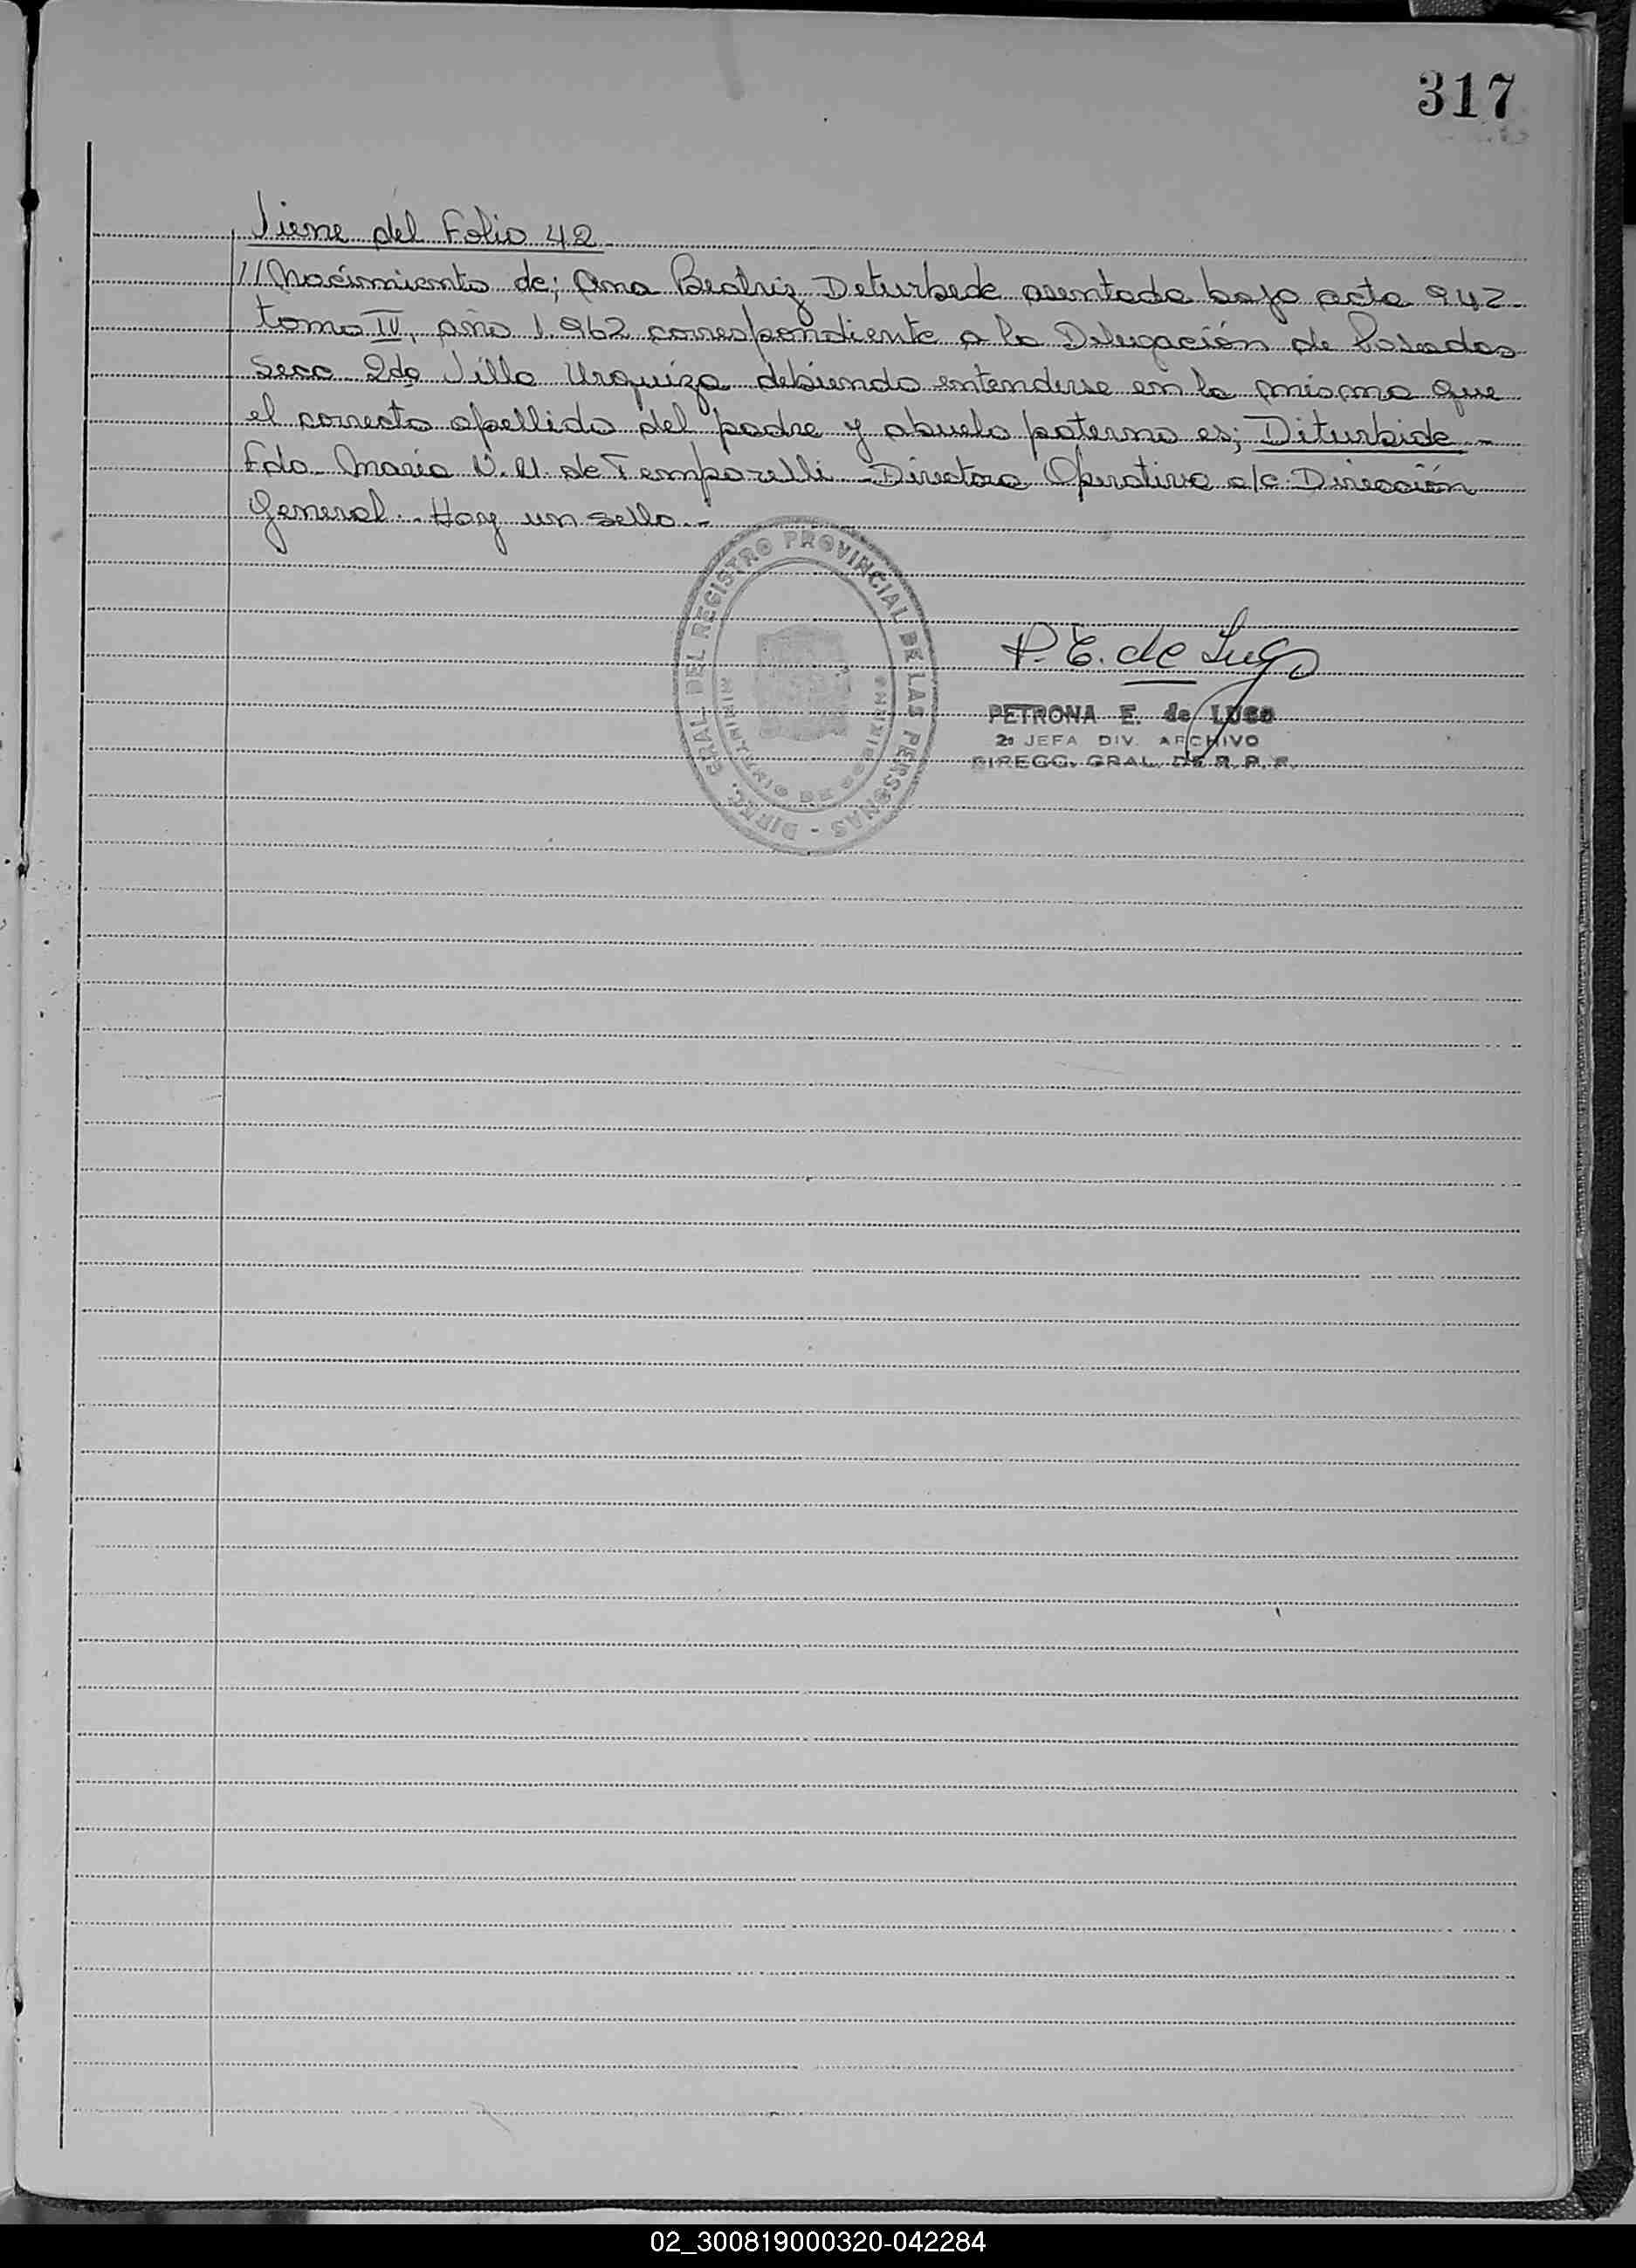 317
Viene del Folio 42
//Nacimiento de; Ana Beatriz Deturbede asentada bajo acta 942-
tomo IV, año 1.962 correspondiente a la Delegación de Posadas
Secc 2da Villa Urquiza debiendo entenderse en la misma que
el correcto apellido del padre y abuelo paterno es; Diturbide-
Fdo- María V. U. de Temporelli - Directora Operativa a/c Dirección
General.- Hay un sello.-
DIREC. GRAL. DEL REGISTRO PROVINCIAL DE LAS PERSONAS -
P. E. de Lugo
PETRONA E. de LUGO
2ª JEFA DIV. ARCHIVO
DIRECC. GRAL. DE R. P. P.
02_300819000320-042284